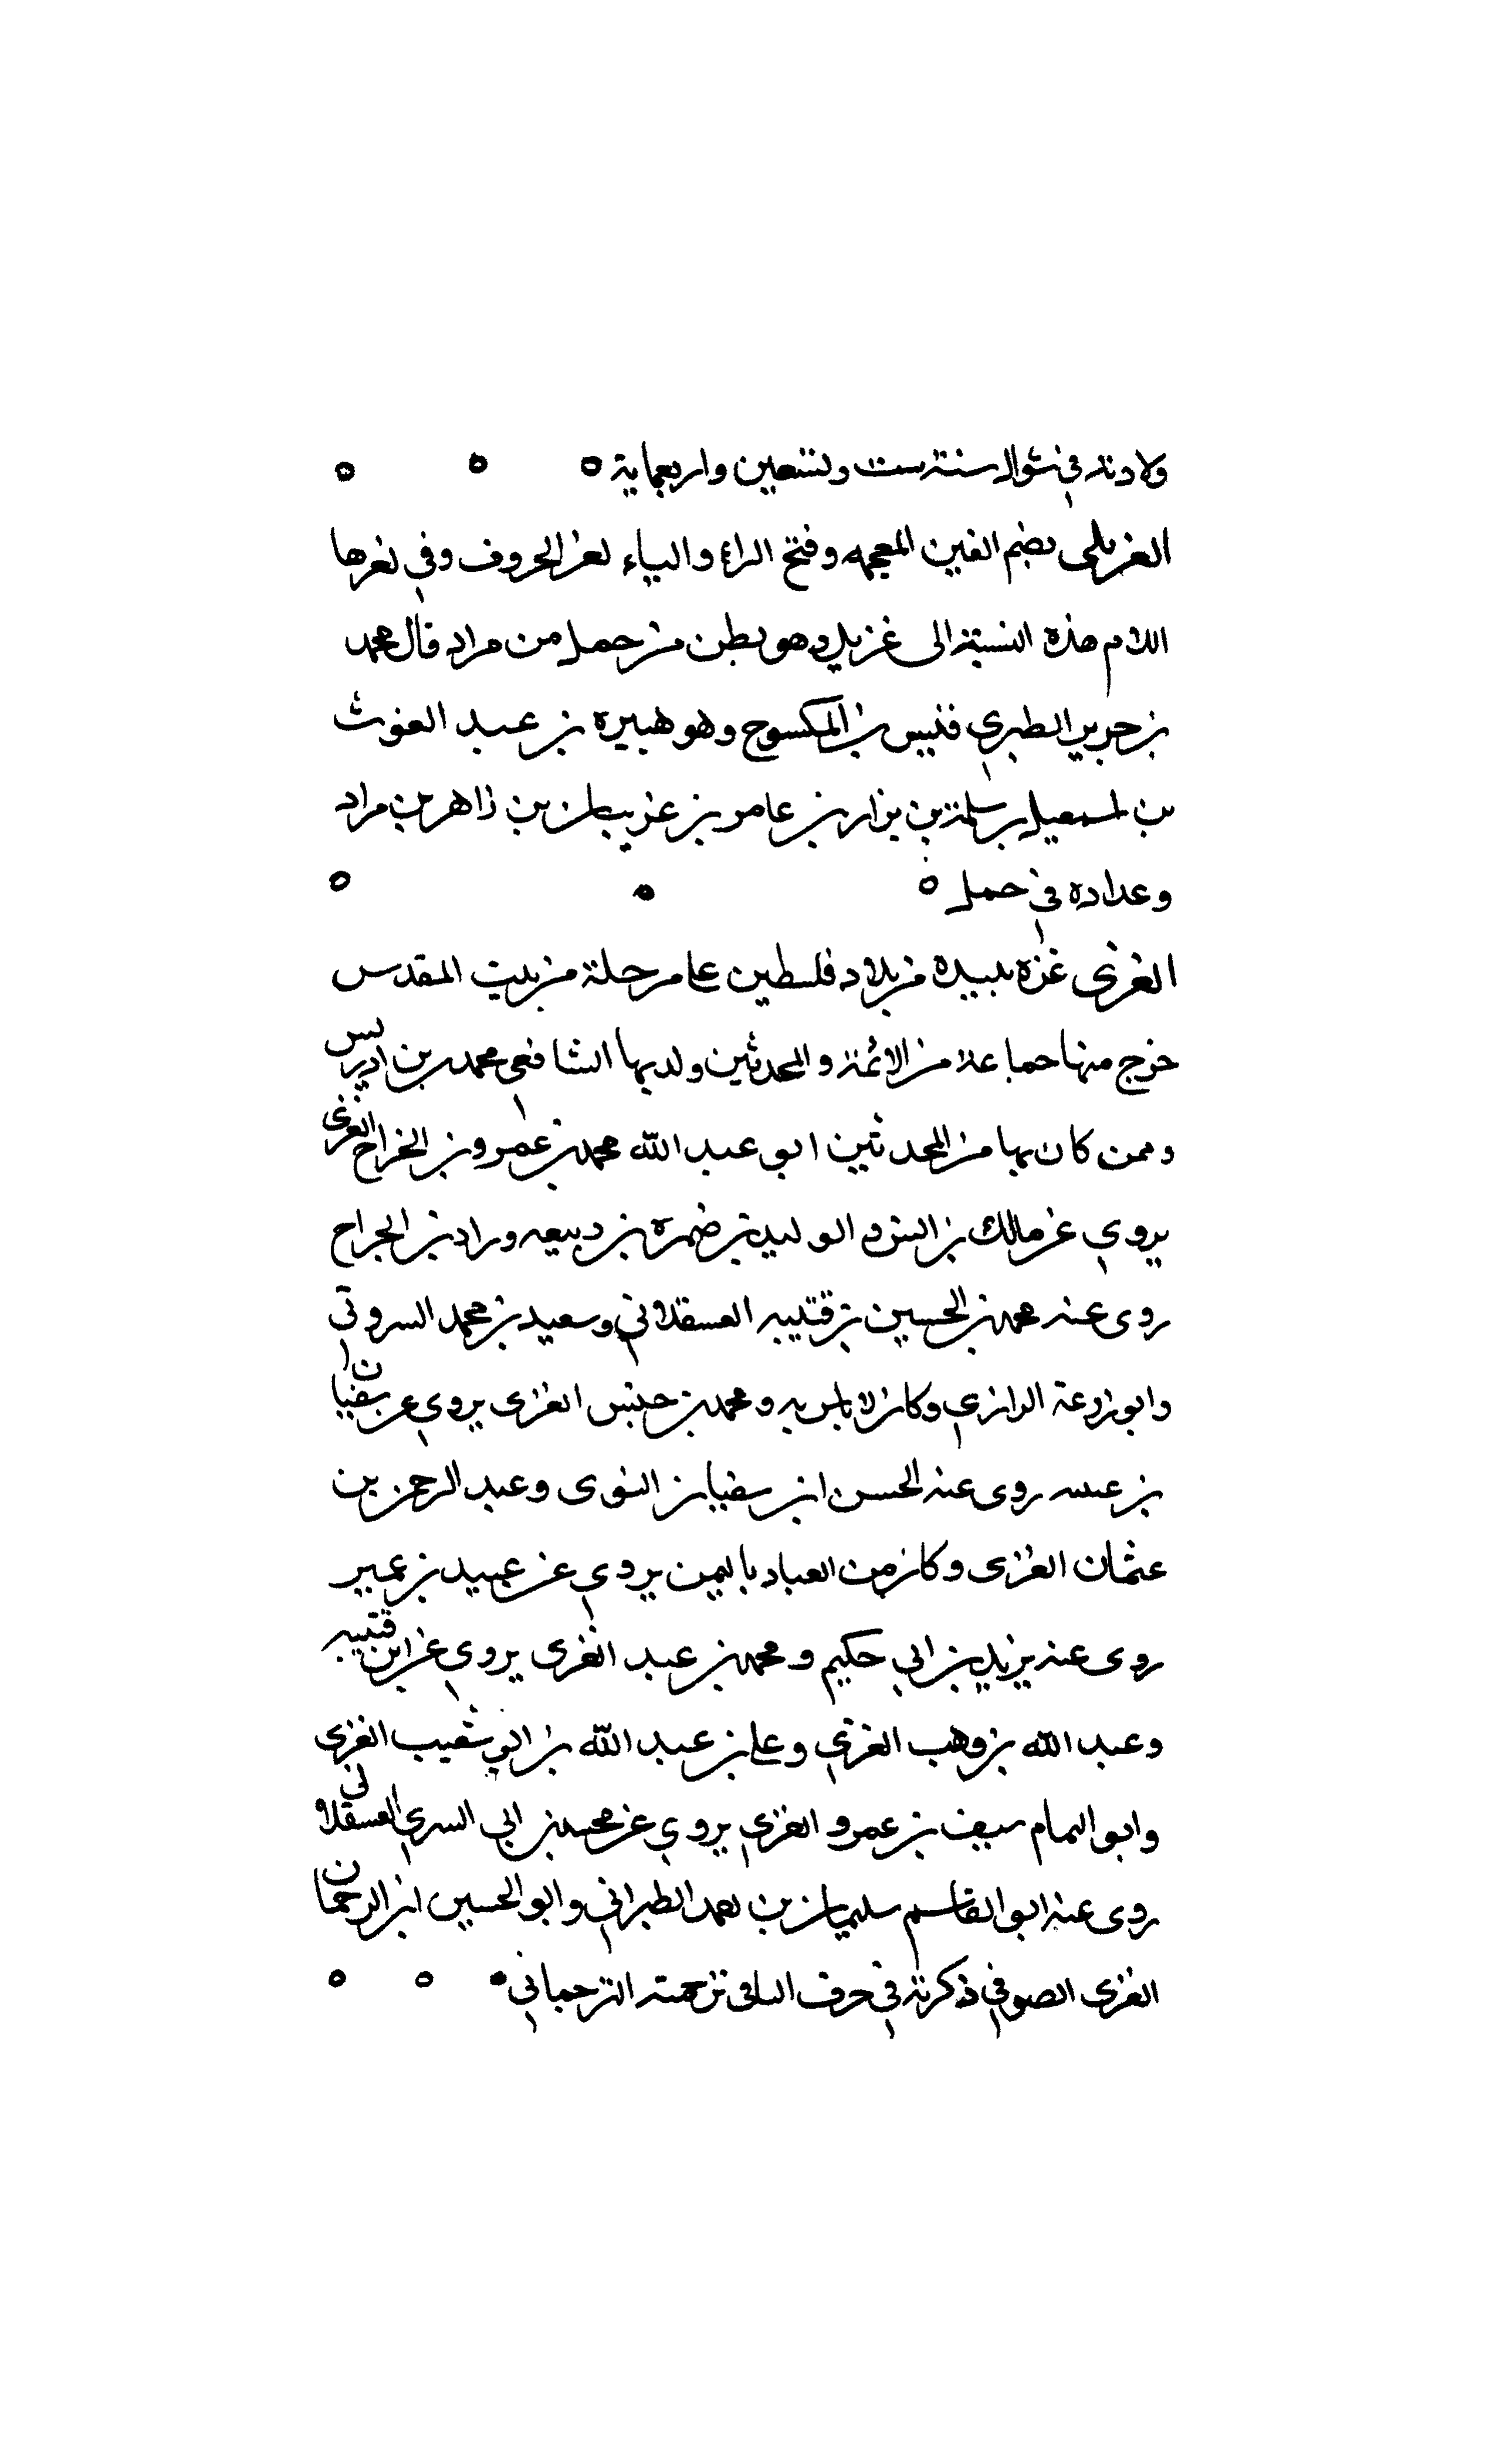 ولادته في شوال سنة ست وتسعين واربعماية ٥ ٥ ٥
الغزيلى بضم الغين المعجمه وفتح الزاء والياء اخر الحروف وفي اخرها
اللام هذه النسبة الى غزيل وهو بطن من جمل من مراد قال محمد
بن جرير الطبري قيس بن المكسوح وهو هبيرة بن عبد الغوث
بن سلمة بن بزار بن عامر بن غزيل بن زاهر بن مراد
وعداده في جمل ٥ ٥ ٥
الغزى غزه بليده من بلاد فلسطين على مرحلة من بيت المقدس
خرج منها جماعة من الائمة والمحدثين ولد بها الشافعي محمد بن ادريس
وممن كان بها من المحدثين ابو عبد الله محمد بن عمرو بن الجراح الغزى
يروي عن مالك بن انس والوليد بن ضمرة بن ربيعه ورواد بن الجراح
روى عنه محمد بن الحسين بن قتيبه العسقلاني وسعيد بن محمد البيروتي
وابو زرعة الرازي وكان لا باس به ومحمد بن حبش الغزى يروي عن سفيان
بن عيينه روى عنه الحسن ابن سفيان النسوى وعبد الرحمن بن
عثمان الغزى وكان من العباد باليمن يروي عن عبيد بن عمير
روى عنه يزيد بن ابي حكيم ومحمد بن عبد الغزى يروي عن ابن قتيبه
وعبد الله بن وهب الغزي وعلى بن عبد الله بن ابي شعيب الغزى
وابو اليمام سيف بن عمرو الغزي يروي عن محمد بن ابي السري العسقلاني
روى عنه ابو القاسم سليمان بن احمد الطبراني وابو الحسين ابن الترجمان
الغزى الصوفي ذكرته في حرف التاء في ترجمة الترجماني ٥ ٥ ٥